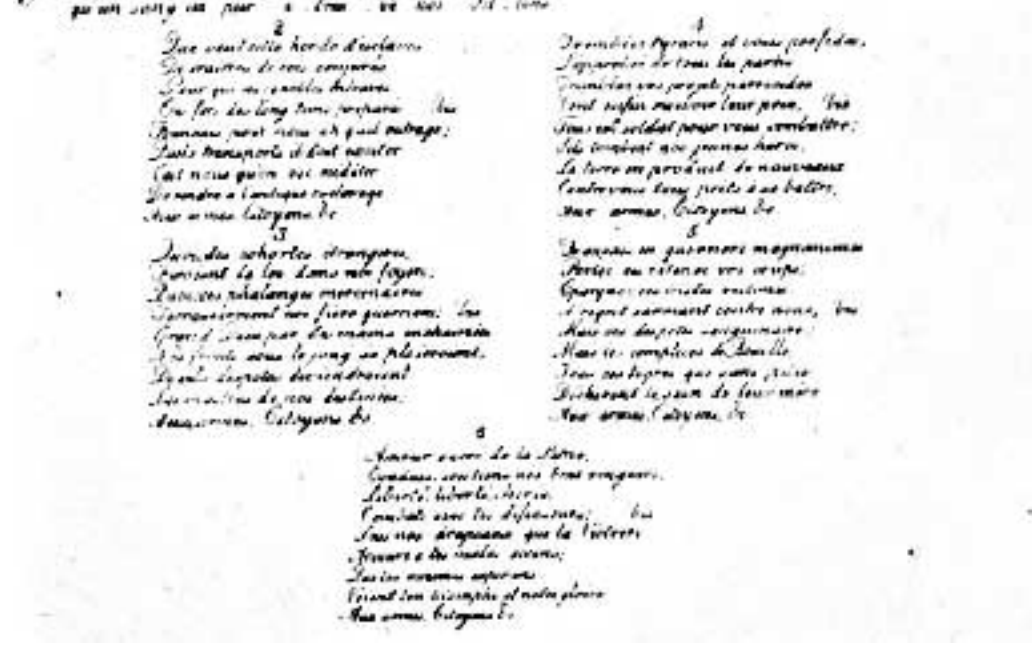 qu'un sang im pur a breu ve nos sil lons.
2
Que veut cette horde d'esclaves
De traitres de rois conjurés
Pour qui ces ignobles entraves
Ces fers dès long tems préparés bis
Francais pour nous ah quel outrage;
Quels transports il doit exciter
C'est nous qu'on ose méditer
De rendre a l'antique esclavage
Aux armes Citoyens &c
3
Quoi, des cohortes étrangeres,
Feroient la loi dans nos foyers;
Quoi, ces phalanges mercenaires
Terrasseroient nos fiers guerriers; bis
Grand Dieu par des mains enchainées
Nos fronts sous le joug se ploieroient,
De vils despotes deviendroient
Les maitres de nos destinées;
Aux armes, Citoyens &c
4
Tremblez tyrans et vous perfides,
L'opprobre de tous les partis
Tremblez vos projets parricides
Vont enfin recevoir leur prix, bis
Tous est soldat pour vous combattre;
S'ils tombent nos jeunes heros,
La terre en produit de nouveaux
Contre vous tous prêts à se battre,
Aux armes, Citoyens &c
5
Francais en guerriers magnanimes
Portez ou retenez vos coups;
Epargnez ces tristes victimes
A regret s'armant contre nous, bis
Mais ces despotes sanguinaires;
Mais les complices de Bouillé,
Tous ces tigres que sans pitié
Déchirent le sein de leur mère
Aux armes, Citoyens, &c
6
Amour sacré de la Patrie,
Conduis, soutiens nos bras vengeurs,
Liberté, liberté, cherie,
Combats avec tes defenseurs; bis
Sous nos drapeaux que la Victoire
Accoure a tes males accens;
Que tes ennemis expirans
Voient ton triomphe et notre gloire
Aux armes, Citoyens &c